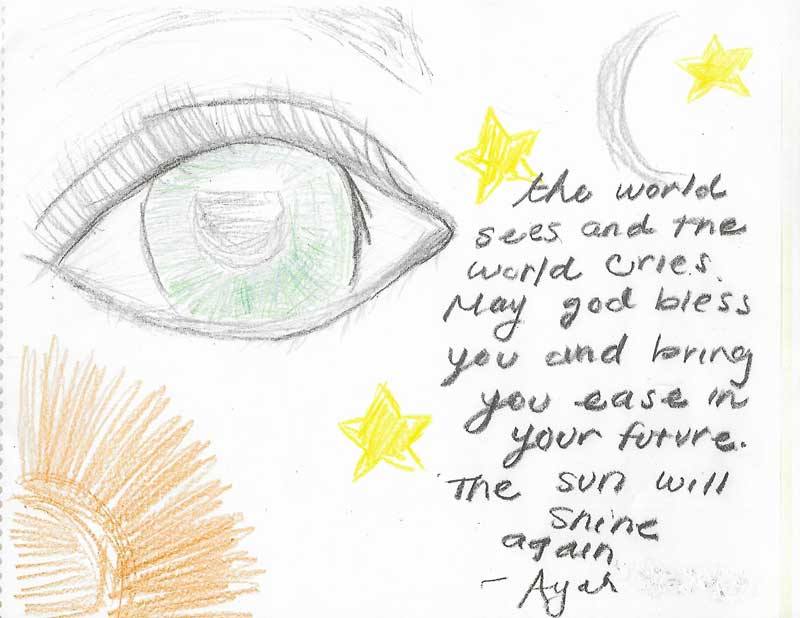 the world
sees and the
world cries.
May god bless
you and bring
you ease in
your future.
The sun will
shine
again
- Ayah